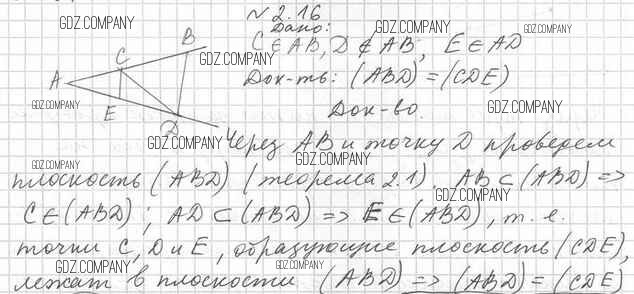 № 2.16
Дано:
C ∈ AB, D ∉ AB, E ∈ AD
Док-ть: (ABD) = (CDE)
Док-во.
Через AB и точку D проведем
плоскость (ABD) (теорема 2.1). AB ⊂ (ABD) =>
C ∈ (ABD); AD ⊂ (ABD) => E ∈ (ABD), т. е.
точки C, D и E, образующие плоскость (CDE),
лежат в плоскости (ABD) => (ABD) = (CDE)
A
C
B
E
D
GDZ.COMPANY
GDZ.COMPANY
GDZ.COMPANY
GDZ.COMPANY
GDZ.COMPANY
GDZ.COMPANY
GDZ.COMPANY
GDZ.COMPANY
GDZ.COMPANY
GDZ.COMPANY
GDZ.COMPANY
GDZ.COMPANY